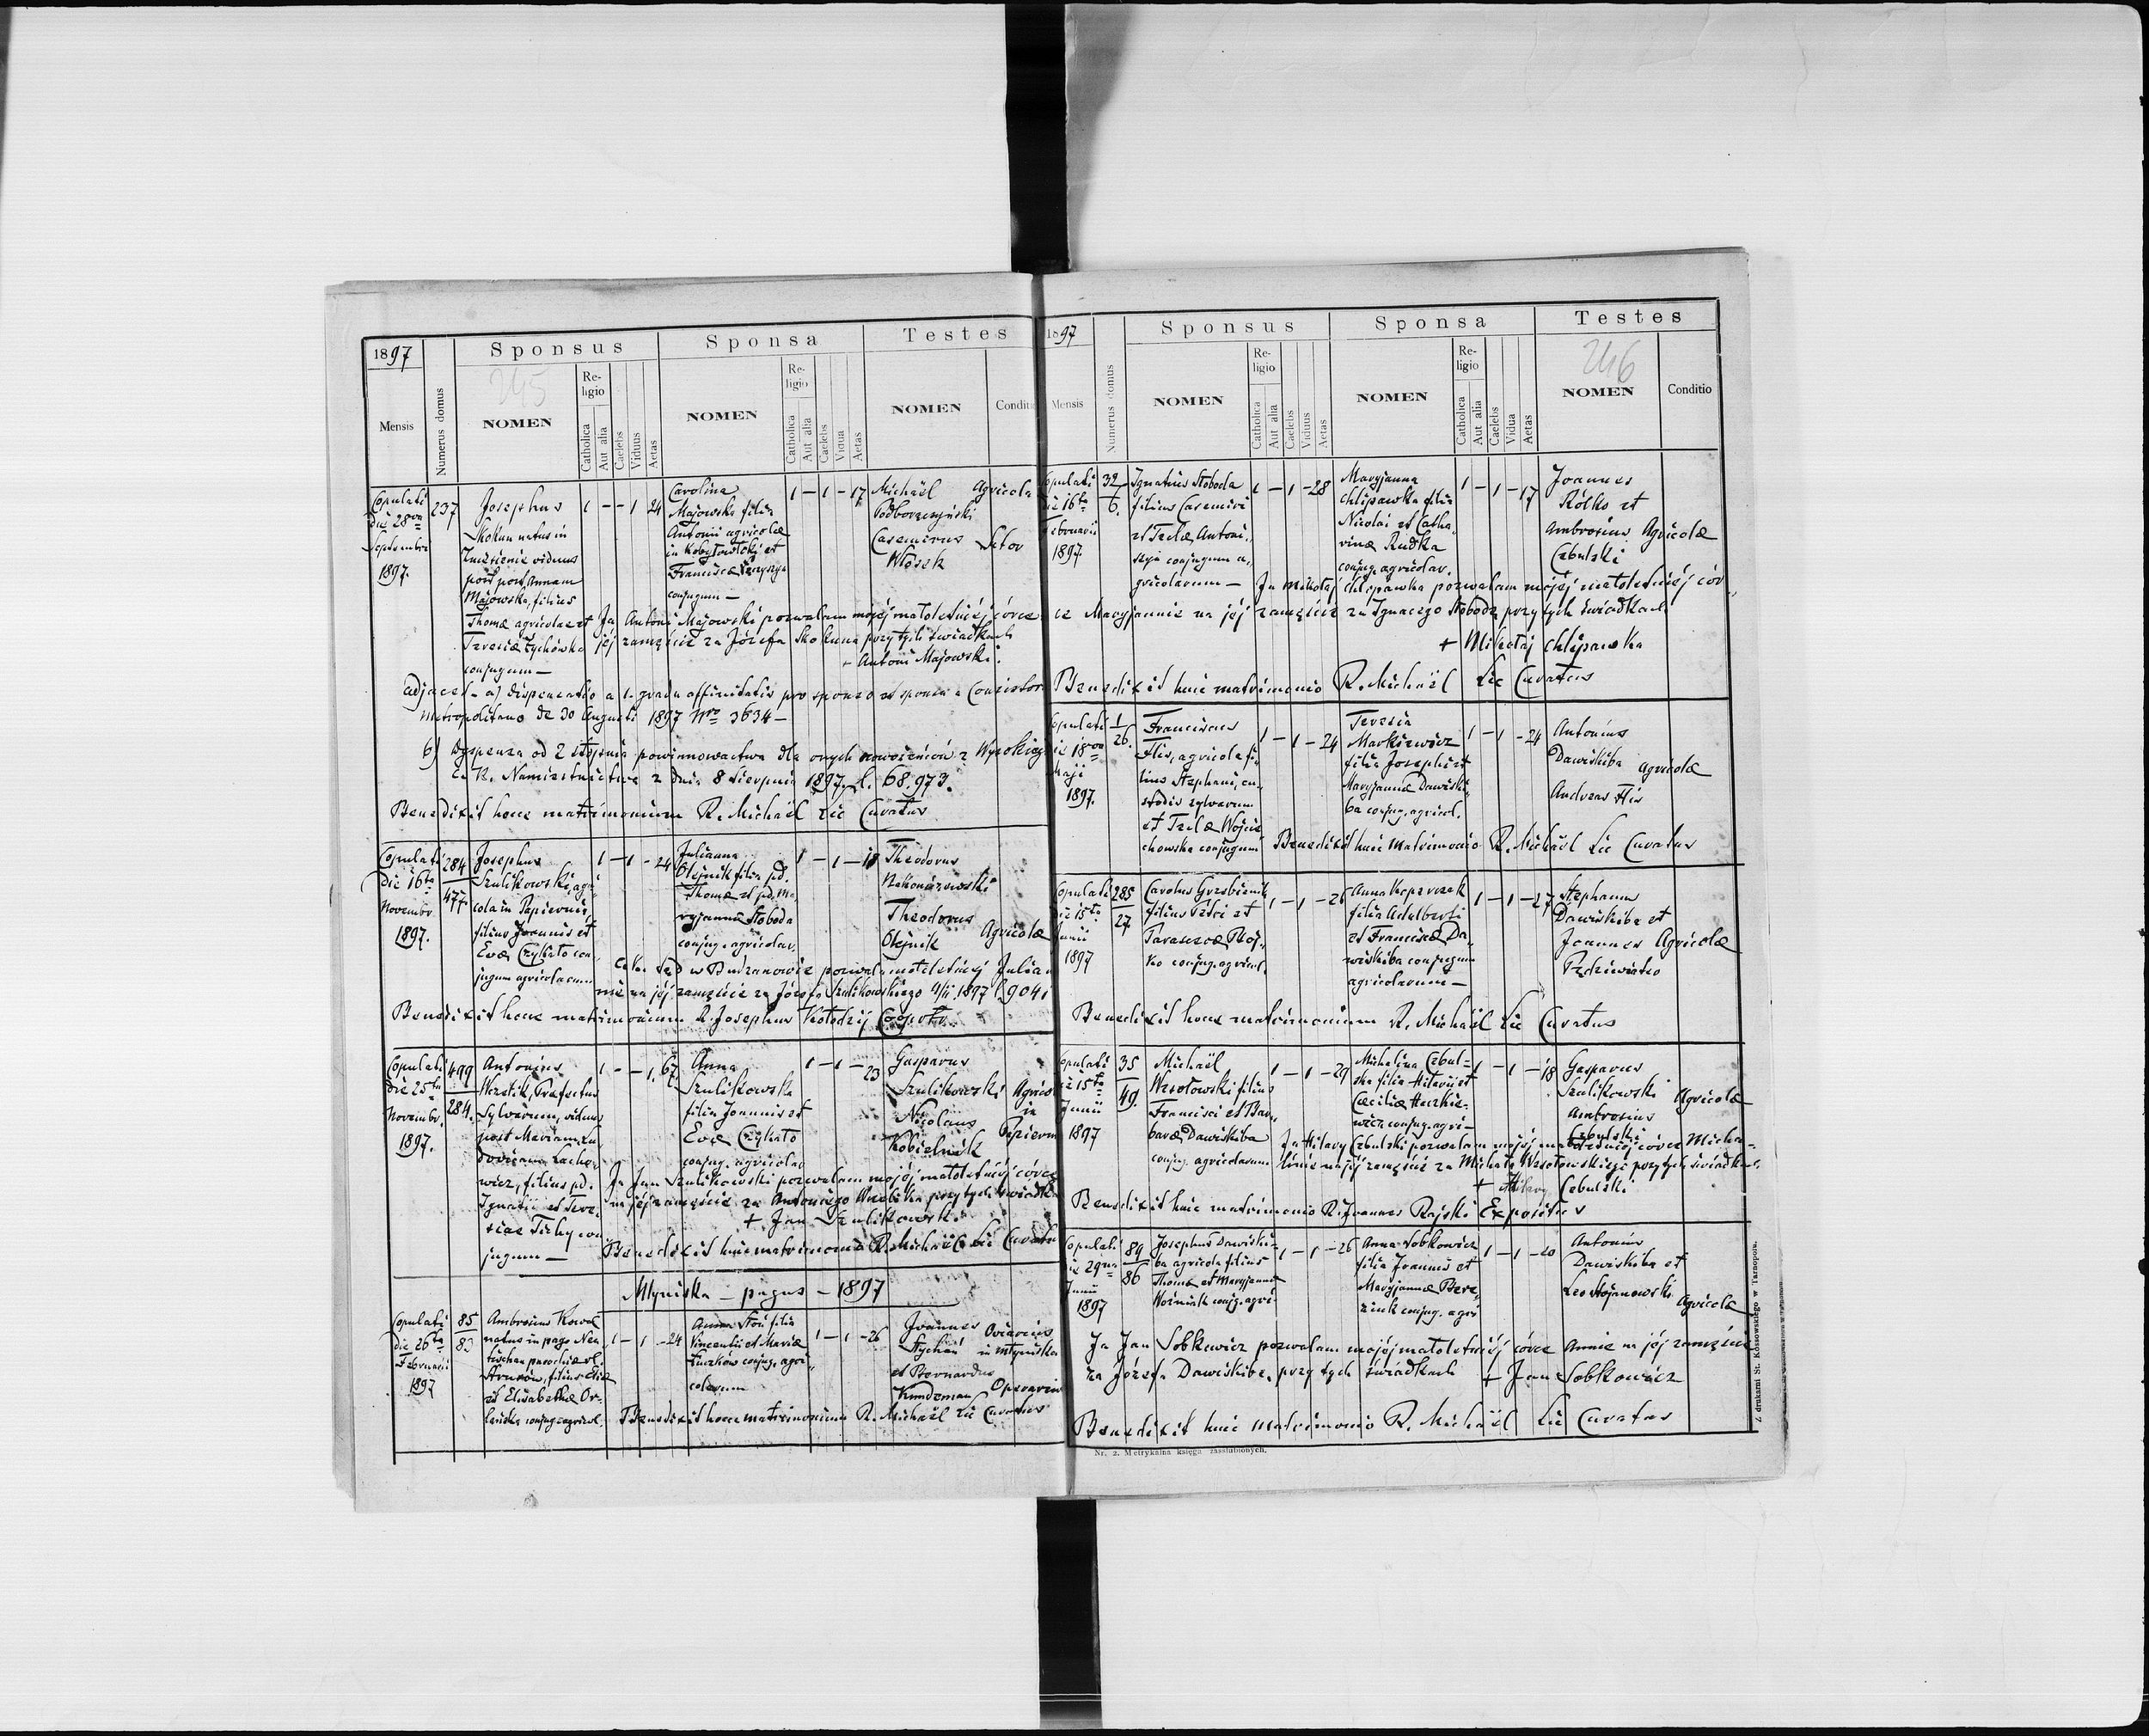 1897
Sponsus
Sponsa
Testes
245
Mensis
Numerus domus
NOMEN
Re-
ligio
Catholica
Aut alia
Caelebs
Viduus
Aetas
NOMEN
Re-
ligio
Catholica
Aut alia
Caelebs
Vidua
Aetas
NOMEN
Conditi
Copulati
die 28va
Septembris
1897.
237
Josephus
Skokun natus in
viduus
post Annam
Majowska, filius
Thomæ agricolæ et
conjugum —
1 — — 1 24
Carolina
Majowska filia
Antonii agricolæ
in Kobyłowłoki et
Franciscæ
conjugum —
1 — 1 — 17
Michaël
Casemirus
Włosek
Agricola
Ja Antoni Majowski pozwalam mojéj małoletniéj córce
jéj zamęście za Józefa Skokuna przy tych świadkach
+ Antoni Majowski.
Adjacet — a) dispensatio a 1. gradu affinitatis pro sponso et sponsa a Consistor
Metropolitano de 30 Augusti 1897 Nro 3634 —
b) dyspenza od 2 stopnia powinnowactwa dla onych nowożeńców z Wysokieg
c. k. Namiestnictwa z dnia 8 Sierpnia 1897. l. 68.973.
Benedixit hocce matrimonium R. Michaël Lic Curatus
Copulati
die 16ta
Novembr.
1897.
284
477.
Josephus
Szulikowski, agri
cola in Papiernia
filius Joannis et
Evæ Czykało con
jugum agricolarum
1 — 1 — 24
Julianna
Olejnik filia pd.
Thomæ et pd. Ma
ryjannæ Słoboda
conjug. agricolar.
1 — 1 — 18
Theodorus
Nakonieczowski
Theodorus
Olejnik
Agricolæ
C. k. Sąd w Budzanowie pozwala małoletniéj Julian
nie na jéj zamęście za Józefa Szulikowskiego 9/11 1897 l. 9041
Benedixit hocce matrimonium R. Josephus Kołodzij Cooprtr.
Copulati
die 25ta
Novembr.
1897.
499
284.
Antonius
Wezelik, Præfectus
Sylvarum, viduus
post Mariam Lu
dovicam Lacho
wicz, filius pd.
Ignatii et Tere
siæ Tichy con
jugum —
1 — — 1. 67.
Anna
Szulikowska
filia Joannis et
Evæ Czykało
conjug. agricolar
1 — 1 — 23
Gasparus
Szulikowski
Nicolaus
Kobielnik
Agricol
in
Papiern
Ja Jan Szulikowski pozwalam mojéj małoletniéj córce
na jéj zamęście za Antoniego Wezelika przy tych świadka
+ Jan Szulikowski
Benedixit huic matrimonio R. Michaël Lic Curatu
Mlyniska — pagus — 1897
Copulati
die 26ta
Februarii
1897
85
83
Ambrosius Kowal
natus in pago Nea
parochiæ rl.
Strusów, filius Eliæ
et Elisabethæ Or-
lańska conjug. agricol.
1 — 1 — 24
Anna Stoń filia
Vincentii et Mariæ
Łuczków conjug. agri-
colarum
1 — 1 — 26
Joannes
Stychań
et Bernardus
Kundzman
Oviarius
in Młyniska
Operarius
Benedixit hocce matrimonium R. Michaël Lic Curatus
1897
Sponsus
Sponsa
Testes
246
Mensis
Numerus domus
NOMEN
Re-
ligio
Catholica
Aut alia
Caelebs
Viduus
Aetas
NOMEN
Re-
ligio
Catholica
Aut alia
Caelebs
Vidua
Aetas
NOMEN
Conditio
opulati
die 16ta
Februarii
1897
32
6.
Ignatius Słoboda
filius Casemiri
et Teclæ Antoni-
szyn conjugum a-
gricolarum —
1 — 1 — 28
Maryjanna
Chlipawka filia
Nicolai et Catha
rinæ Rudka
conjug. agricolar.
1 — 1 — 17
Joannes
Rólko et
Ambrosius
Czbulski
Agricolæ
Ja Mikołaj Chlipawka pozwalam mojéj małoletniéj cór
ce Maryjannie na jéj zamęście za Ignacego Słobodę przy tych świadkach
+ Mikołaj Chlipawka
Benedixit huic matrimonio R. Michaël Lic Curatus
opulati
ie 18va
Maji
1897.
1
26.
Franciscus
Flis, agricola fi-
lius Stephani, cu-
stodis sylvarum
et Teclæ Wojcie
chowska conjugum
1 — 1 — 24
Teresia
Markiewicz
filia Josephi et
Maryjannæ Dawiski
ba conjug. agricol.
1 — 1 — 24
Antonius
Dawiskiba
Andreas Flis
agricolæ
Benedixit huic matrimonio R. Michaël Lic Curatus
opulati
die 15ta
Junii
1897
285
27.
Carolus Grzebieniuk
filius Petri et
Parascevæ Boj-
ko conjug. agricol.
1 — 1 — 26
Anna Kasprczak
filia Adalberti
et Franciscæ Da-
wiskiba conjugum
agricolarum —
1 — 1 — 27
Stephanus
Dawiskiba et
Joannes
Agricolæ
Benedixit hocce matrimonium R. Michaël Lic Curatus
opulati
ie 15ta
Junii
1897
35
49.
Michaël
Wesołowski filius
Francisci et Bar-
baræ Dawiskiba
conjug. agricolarum
1 — 1 — 29
Michalina Czbul-
ska filia Hilarii et
Cæciliæ Huzkie-
wicz conjug. agri-
1 — 1 — 18
Gasparus
Szulikowski
Ambrosius
Czbulski
Agricolæ
Ja Hilary Czbulski pozwalam mojéj małoletniéj córce Micha-
linie na jéj zamęście za Michała Wesołowskiego przy tych świadkach.
+ Hilary Czbulski
Benedixit huic matrimonio R. Joannes Rajski Expositus
opulati
ie 29na
Junii
1897
89
86
Josephus Dawiski-
ba agricola filius
Thomæ et Maryjannæ
Woźniak conjug. agri-
1 — 1 — 26
Anna Sobkowicz
filia Joannis et
Maryjannæ Bere-
ziuk conjug. agri
1 — 1 — 20
Antonius
Dawiskiba et
Leo Stojanowski
Agricolæ
Ja Jan Sobkowicz pozwalam mojéj małoletniéj córce Annie na jéj zamęście
za Józefa Dawiskiba, przy tych świadkach + Jan Sobkowicz
Benedixit huic matrimonio R. Michaël Lic Curatus
Nr. 2. Metrykalna księga zaślubionych.
Z drukarni St. Kossowskiego w Tarnopolu.